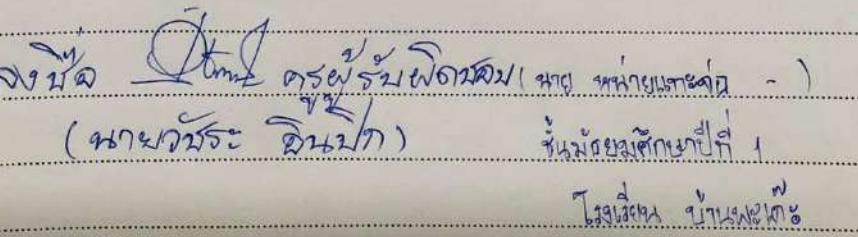 ลงชื่อ ครูผู้รับผิดชอบ (นาย หน่ายแทะค่อ - )
(นายวัชระ อินปัก) ชั้นมัธยมศึกษาปีที่ 1
โรงเรียน บ้านพะเด๊ะ